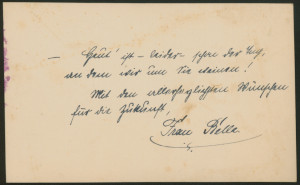 — Heut' ist – leider – schon der Tag,
an dem wir um Sie weinen!
Mit den allerherzlichsten Wünschen
für die Zukunft!
Frau Bella